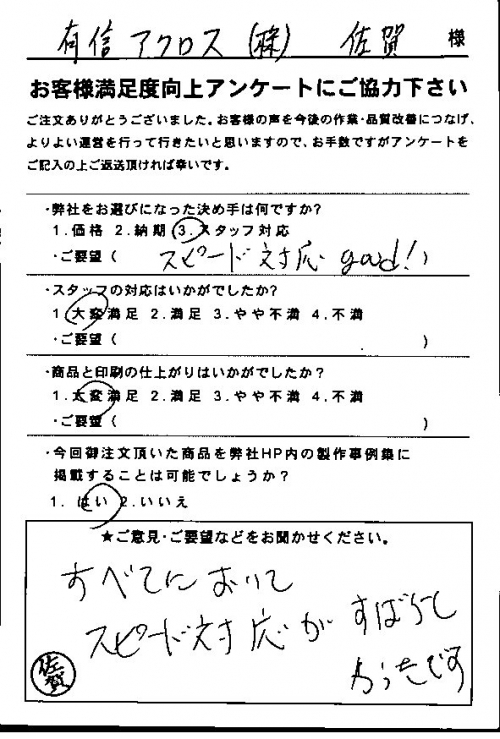 有信アクロス(株) 佐賀 様
お客様満足度向上アンケートにご協力下さい
ご注文ありがとうございました。お客様の声を今後の作業・品質改善につなげ、
よりよい運営を行って行きたいと思いますので、お手数ですがアンケートを
ご記入の上ご返送頂ければ幸いです。
・弊社をお選びになった決め手は何ですか?
1.価格 2.納期 3.スタッフ対応
・ご要望( スピード対応 good! )
・スタッフの対応はいかがでしたか?
1.大変満足 2.満足 3.やや不満 4,不満
・ご要望( )
・商品と印刷の仕上がりはいかがでしたか?
1.大変満足 2.満足 3.やや不満 4,不満
・ご要望( )
・今回御注文頂いた商品を弊社HP内の製作事例集に
掲載することは可能でしょうか?
1. はい 2.いいえ
★ご意見・ご要望などをお聞かせください。
すべてにおいて
スピード対応が すばらし
かったです
佐賀